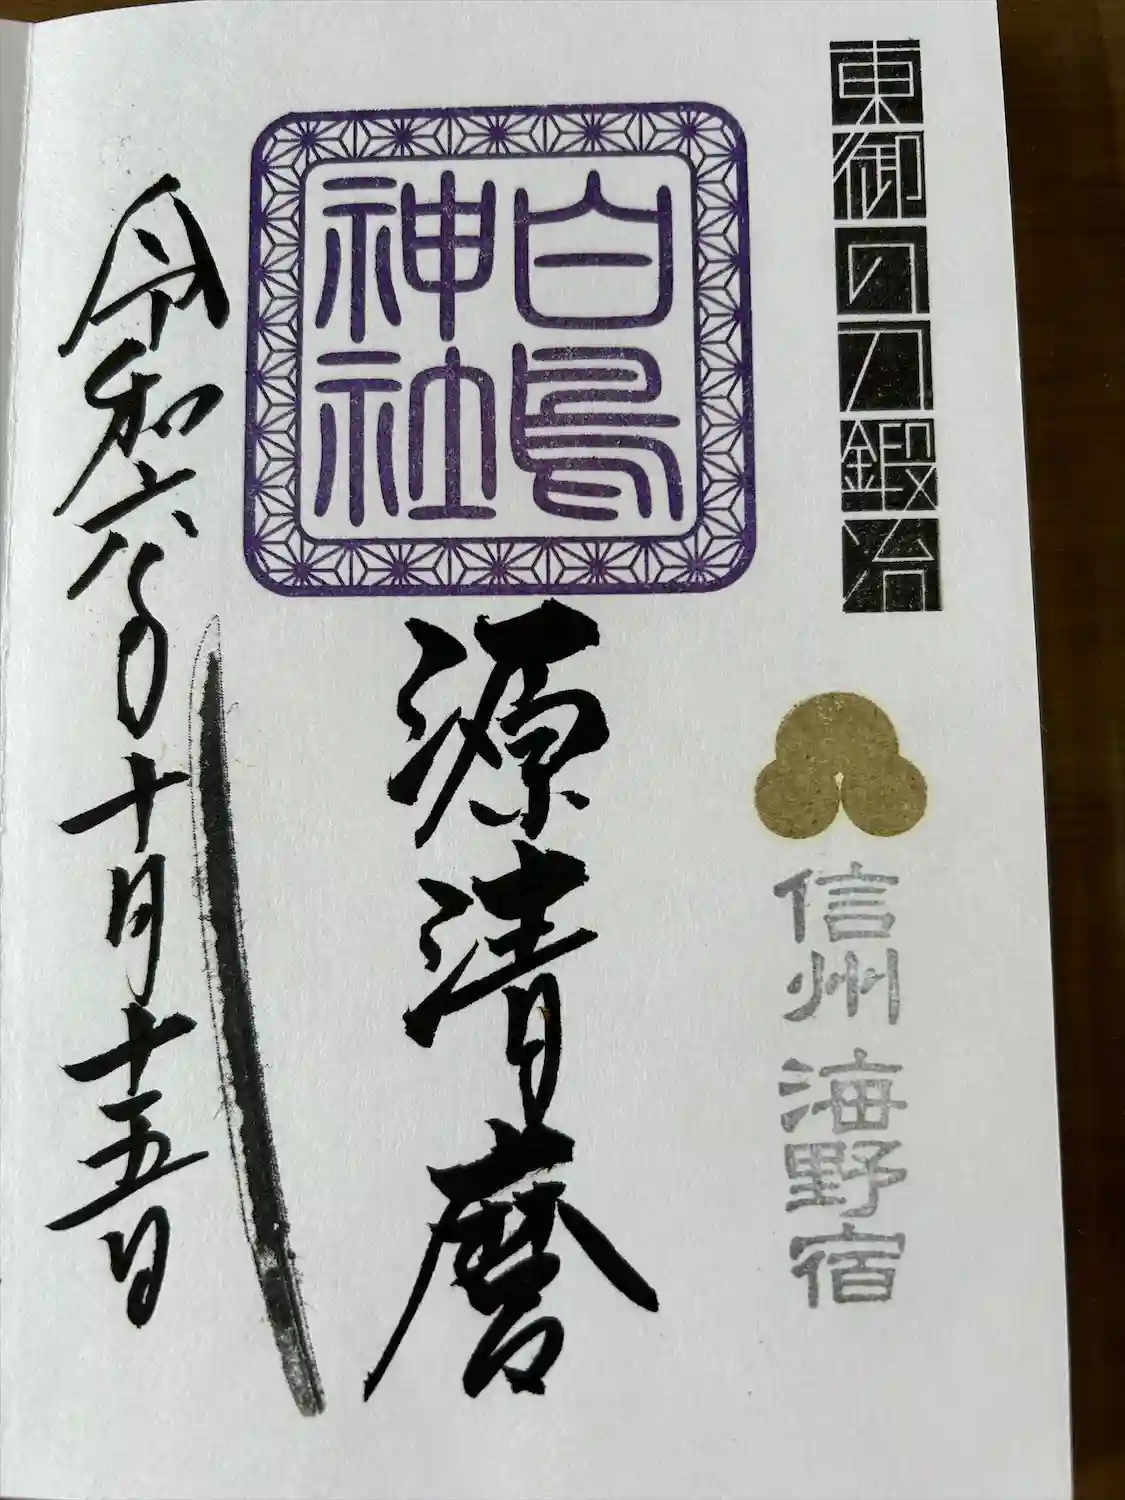 東御の刀鍛冶
信州 海野宿
白鳥
神社
源清麿
令和六年十月十五日